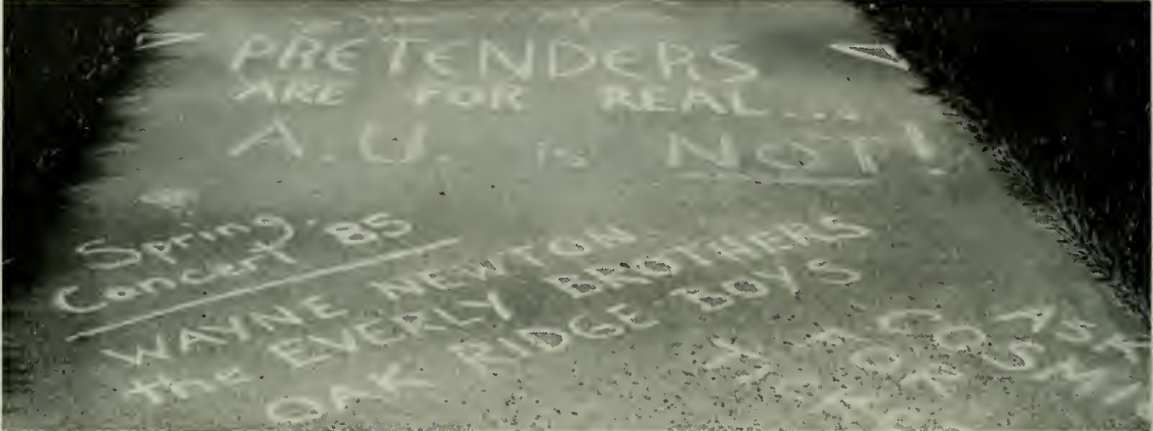 PRETENDERS
ARE FOR REAL...
A.U. is NOT!
Spring
Concert '85
WAYNE NEWTON
the EVERLY BROTHERS
OAK RIDGE BOYS
ASK